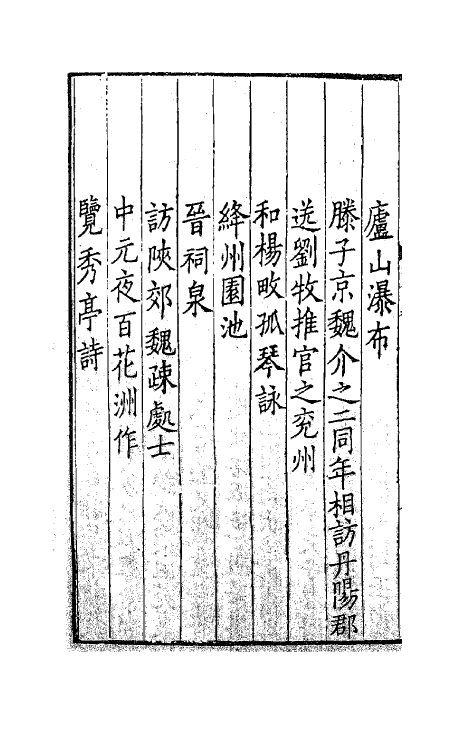 廬山瀑布
滕子京魏介之二同年相訪丹陽郡
送劉牧推官之兖州
和楊畋孤琴詠
絳州園池
晉祠泉
訪陜郊魏疎處士
中元夜百花洲作
覽秀亭詩